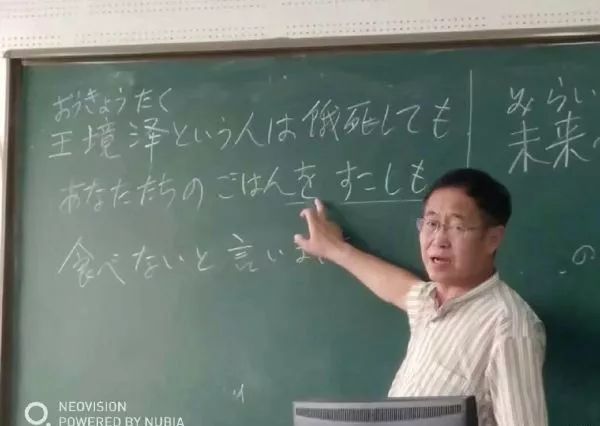 おうきょうたく
王境泽という人は餓死しても
あなたたちのごはんをすこしも
食べないと言いま
みらい
未来
の
NEOVISION
POWERED BY NUBIA